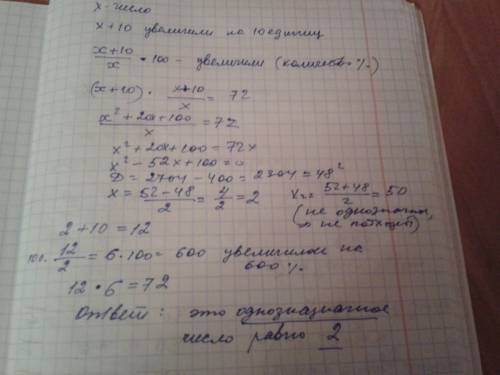 x - число
x+10 увеличили на 10 единиц
(x+10)/x · 100 - увеличили (количество %)
(x+10) · (x+10)/x = 72
(x² + 20x + 100)/x = 72
x² + 20x + 100 = 72x
x² - 52x + 100 = 0
D = 2704 - 400 = 2304 = 48²
x = (52-48)/2 = 4/2 = 2 x₂ = (52+48)/2 = 50
(не однозначн,
не подходит)
2 + 10 = 12
100. 12/2 = 6·100 = 600 увеличилось на
600%
12 · 6 = 72
Ответ: это однозначное
число равно 2